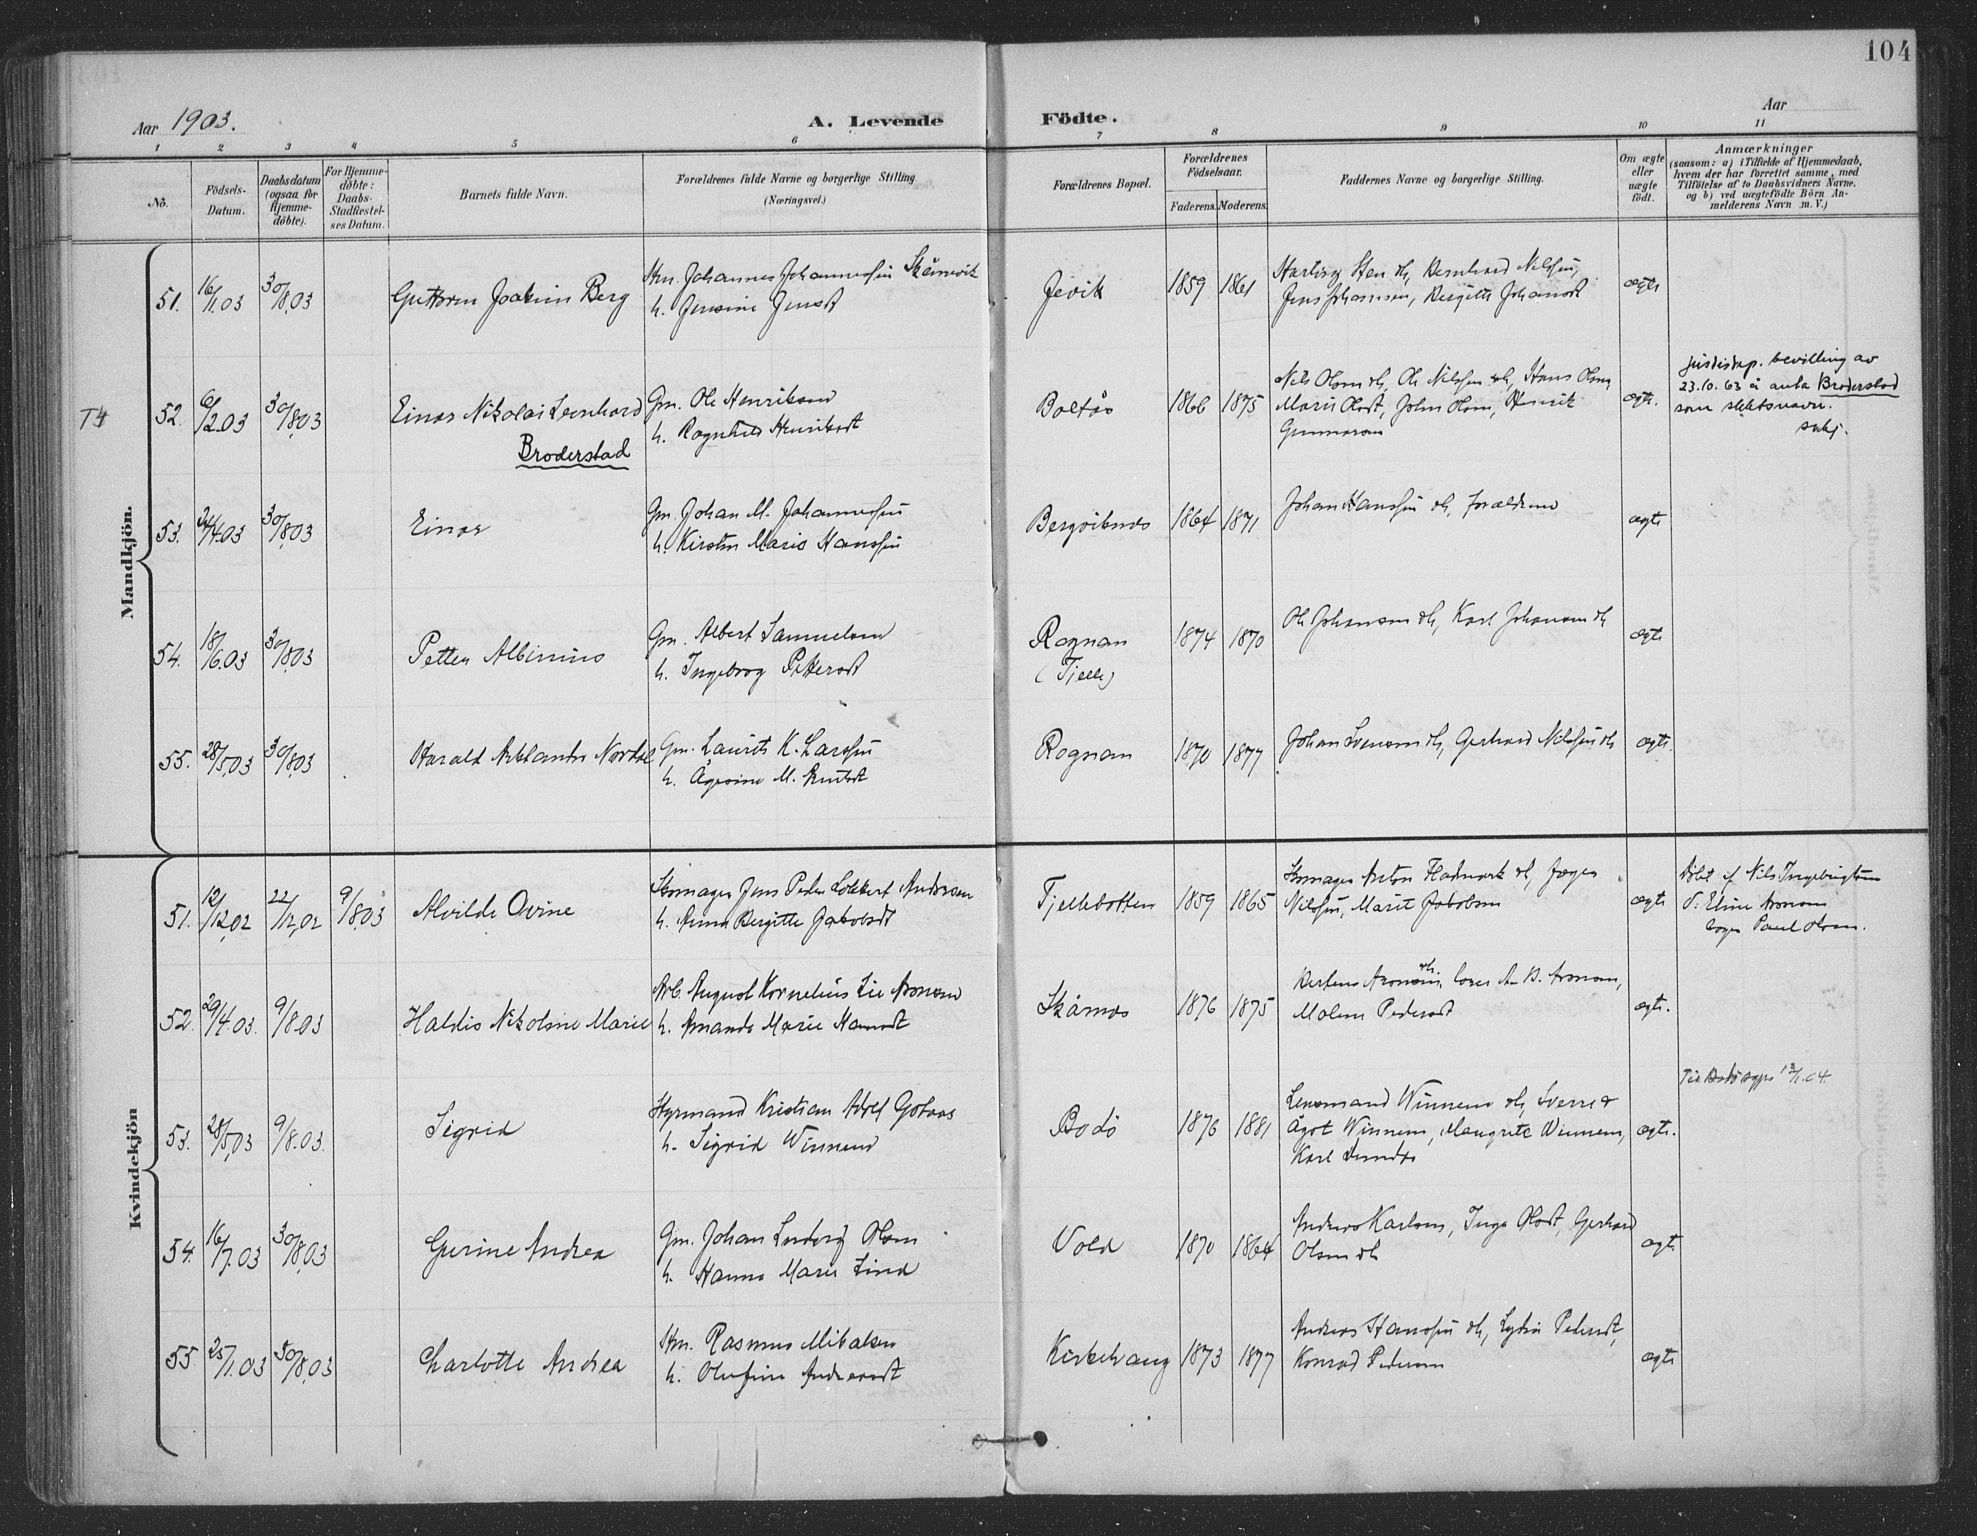 104
Aar 1903. A. Levende Födte. Aar
1 2 3 4 5 6 7 8 9 10 11
No.
Födsels-
Datum.
Daabsdatum
(ogsaa for
Hjemme-
döbte).
For Hjemme-
döbte:
Daabs-
Stadfæstel-
ses Datum.
Barnets fulde Navn.
Forældrenes fulde Navne og borgerlige Stilling
(Næringsvei.)
Forældrenes Bopæl.
Forældrenes
Födselsaar.
Faderens. Moderens.
Faddernes Navne og borgerlige Stilling.
Om ægte
eller
uægte
födt.
Anmærkninger
(saasom: a) i Tilfælde af Hjemmedaab,
hvem der har forrettet samme, med
Tilföielse af to Daabsvidners Navne.
og b) ved uægtefödte Börn An-
melderens Navn m. V.)
Mandkjön.
51. 16/1.03 30/8.03 Guttorm Joakim Berg
Johannes Johannessen Skåmvik
h. Jensine Jensdt
Jevik 1859 1861
Sten Bernhard Nilssen,
Jens Johansen, Bergitte Johansdt
ægte
T4 52. 6/2.03 30/8.03 Einar Nikolai Leonhard
Broderstad
Gm. Ole Henriksen
h. Ragnhild Henriksdt
Botn̊ås 1866 1875
Nils Olsen Ole Nilssen Hans Olsen
Marie Olsdt, John Olsen, Henrik
Gunnarsen
ægte.
justisdep. bevilling av
23.10.63 å anta Broderstad
som slektsnavn.
53. 24/4.03 30/8.03 Einar
Gm. Johan M. Johannessen
h. Kirsten Marie Hanssen
1864 1871
Johan Hanssen forældrene
ægte
54. 18/6.03 30/8.03 Petter Albinius
Gm. Albert Samuelsen
h. Ingeborg Pettersdt
Rognan
(Tjelle)
1874 1870
Ole Johansen Karl Johansen
ægte
55. 28/5.03 30/8.03 Harald Nordal
Gm. Laurits K. Larssen
h. Ågesine M. Knutsdt
Rognan 1870 1877
Johan Svensen Gerhard Nilssen
ægte
Kvindekjön
51. 12/12.02 22/12.02 9/8.03 Alvilde Ovine
Skomager Jens Peder Lokkert Andersen
h. Anna Bergitte Jakobsdt
Tjellebotten 1859 1865
Skomager Anton Hadmark
Nilssen, Maret Jakobsen
ægte
Döbt af Nils Ingebrigtsen
F: Eline Aronsen
Paul Olsen.
52. 29/4.03. 9/8.03 Haldis Nikoline Marie
Arb. August Kornelius Lie Aronsen
h. Amanda Marie Hansdt
Skånes 1876 1875
Aronsen, A. B. Aronsen,
Malene Pedersdt
ægte.
53. 28/5.03 9/8.03. Sigrid
Styrmand Kristian Adolf Gotaas
h. Sigrid Winnem
Bodö 1876 1881
Lensmand Winnem Sverre &
Ågot Winnem, Margrete Winnem,
Karl
ægte.
Til Bodö 1.04.
54. 16/7.03 30/8.03 Gurine Andrea
Gm. Johan Ludvig Olsen
h. Hanna Marie Lind
Vold 1870 1864
Andreas Karlsen, Inga Olsdt, Gerhard
Olsen
ægte.
55 25/1.03 30/8.03 Charlotte Andrea
Rasmus Mikalsen
h. Olufine Andreasdt
Kirkehaug 1873 1877
Andreas Hanssen Lydia Pedersdt,
Konrad Pedersen
ægte